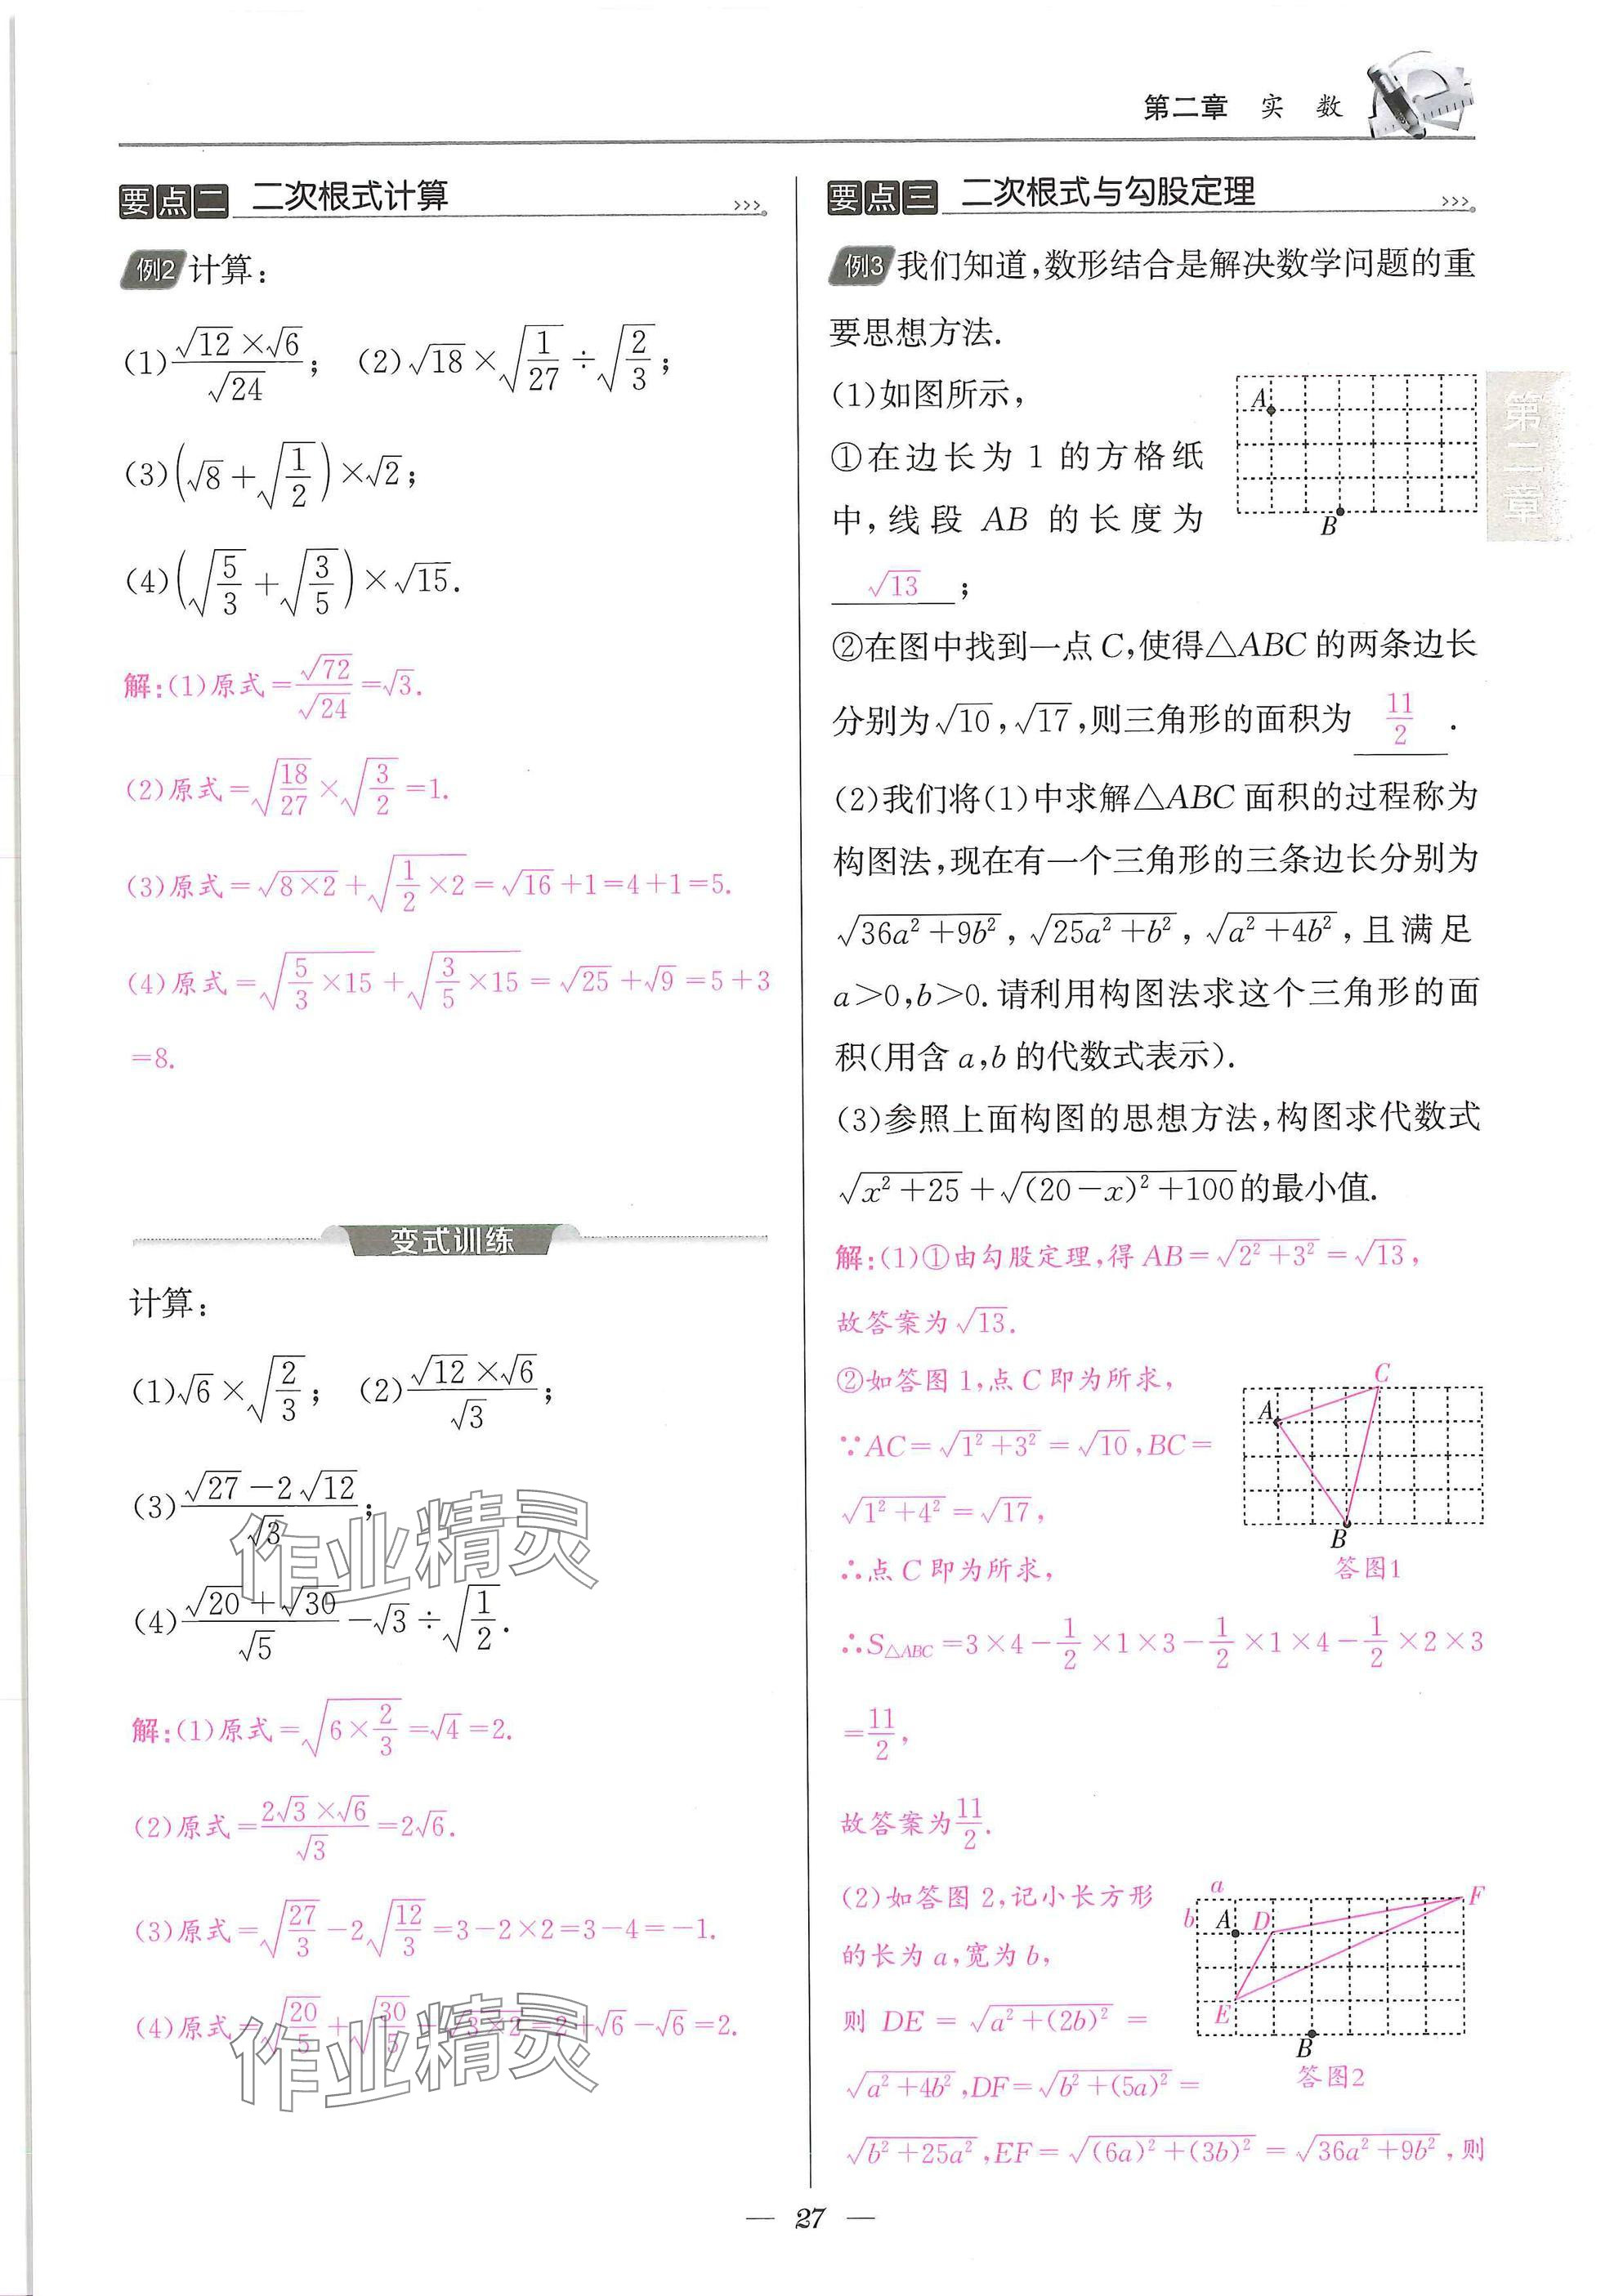 第二章 实 数
要点二 二次根式计算 >>>
例2 计算：
(1)\frac{√12×√6}{√24}； (2)√18×√(1/27)÷√(2/3)；
(3)(√8+√(1/2))×√2；
(4)(√(5/3)+√(3/5))×√15.
解：(1)原式=\frac{√72}{√24}=√3.
(2)原式=√(18/27)×√(3/2)=1.
(3)原式=√(8×2)+√(1/2×2)=√16+1=4+1=5.
(4)原式=√(5/3×15)+√(3/5×15)=√25+√9=5+3
=8.
变式训练
计算：
(1)√6×√(2/3)； (2)\frac{√12×√6}{√3}；
(3)\frac{√27-2√12}{√3}；
(4)\frac{√20+√30}{√5}-√3÷√(1/2).
解：(1)原式=√(6×2/3)=√4=2.
(2)原式=\frac{2√3×√6}{√3}=2√6.
(3)原式=√(27/3)-2√(12/3)=3-2×2=3-4=-1.
(4)原式=√(20/5)+√(30/5)-√(3×2)=2+√6-√6=2.
作业精灵
作业精灵
要点三 二次根式与勾股定理 >>>
例3 我们知道，数形结合是解决数学问题的重
要思想方法.
(1)如图所示，
①在边长为 1 的方格纸
中，线段 AB 的长度为
√13；
A
B
②在图中找到一点C，使得△ABC的两条边长
分别为√10，√17，则三角形的面积为 11/2 .
(2)我们将(1)中求解△ABC面积的过程称为
构图法，现在有一个三角形的三条边长分别为
√(36a²+9b²)，√(25a²+b²)，√(a²+4b²)，且满足
a>0,b>0.请利用构图法求这个三角形的面
积(用含a,b的代数式表示).
(3)参照上面构图的思想方法，构图求代数式
√(x²+25)+√((20-x)²+100)的最小值.
解：(1)①由勾股定理，得AB=√(2²+3²)=√13，
故答案为√13.
②如答图1，点C即为所求，
∵AC=√(1²+3²)=√10，BC=
√(1²+4²)=√17，
∴点C即为所求，
A
C
B
答图1
∴S△ABC=3×4-1/2×1×3-1/2×1×4-1/2×2×3
=11/2，
故答案为11/2.
(2)如答图2，记小长方形
的长为a，宽为b，
则 DE=√(a²+(2b)²)=
√(a²+4b²)，DF=√(b²+(5a)²)=
√(b²+25a²)，EF=√((6a)²+(3b)²)=√(36a²+9b²)，则
a
b
A
D
F
E
B
答图2
第二章
— 27 —